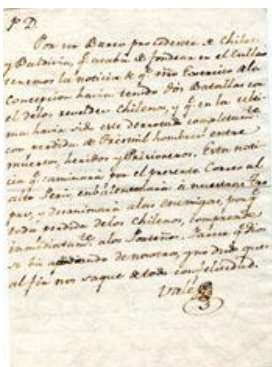 P. D.
Por un Barco procedente de Chiloe
y Valdivia, q.e acaba de fondear en el Callao
tenemos la noticia de q.e nro Exercito de la
Concepcion havia tenido dos Batallas con
el de los reveldes Chilenos, y q.e en la ulti
ma havia sido este derrotado completam.te
con perdida de tres mil hombres entre
muertos, heridos y Pricioneros. Esta noti
cia q.e caminará por el presente Correo al
alto Perú, enbalentonará á nuestras Tro
pas, y desanimará a los enemigos, por q.e
toda perdida de los Chilenos, comprende
inmediatam.te a los Porteños. Parece q.e Dios
se bá apiadando de nosotros, y no dudo que
al fin nos saque de todo con felicidad.
Vale